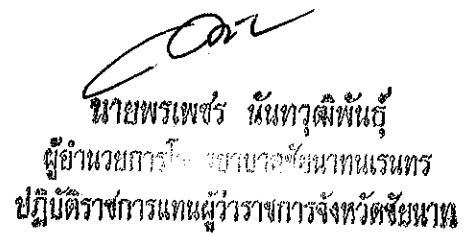 นายพรเพชร นันทวุฒิพันธุ์
ผู้อำนวยการโรงพยาบาลชัยนาทนเรนทร
ปฏิบัติราชการแทนผู้ว่าราชการจังหวัดชัยนาท